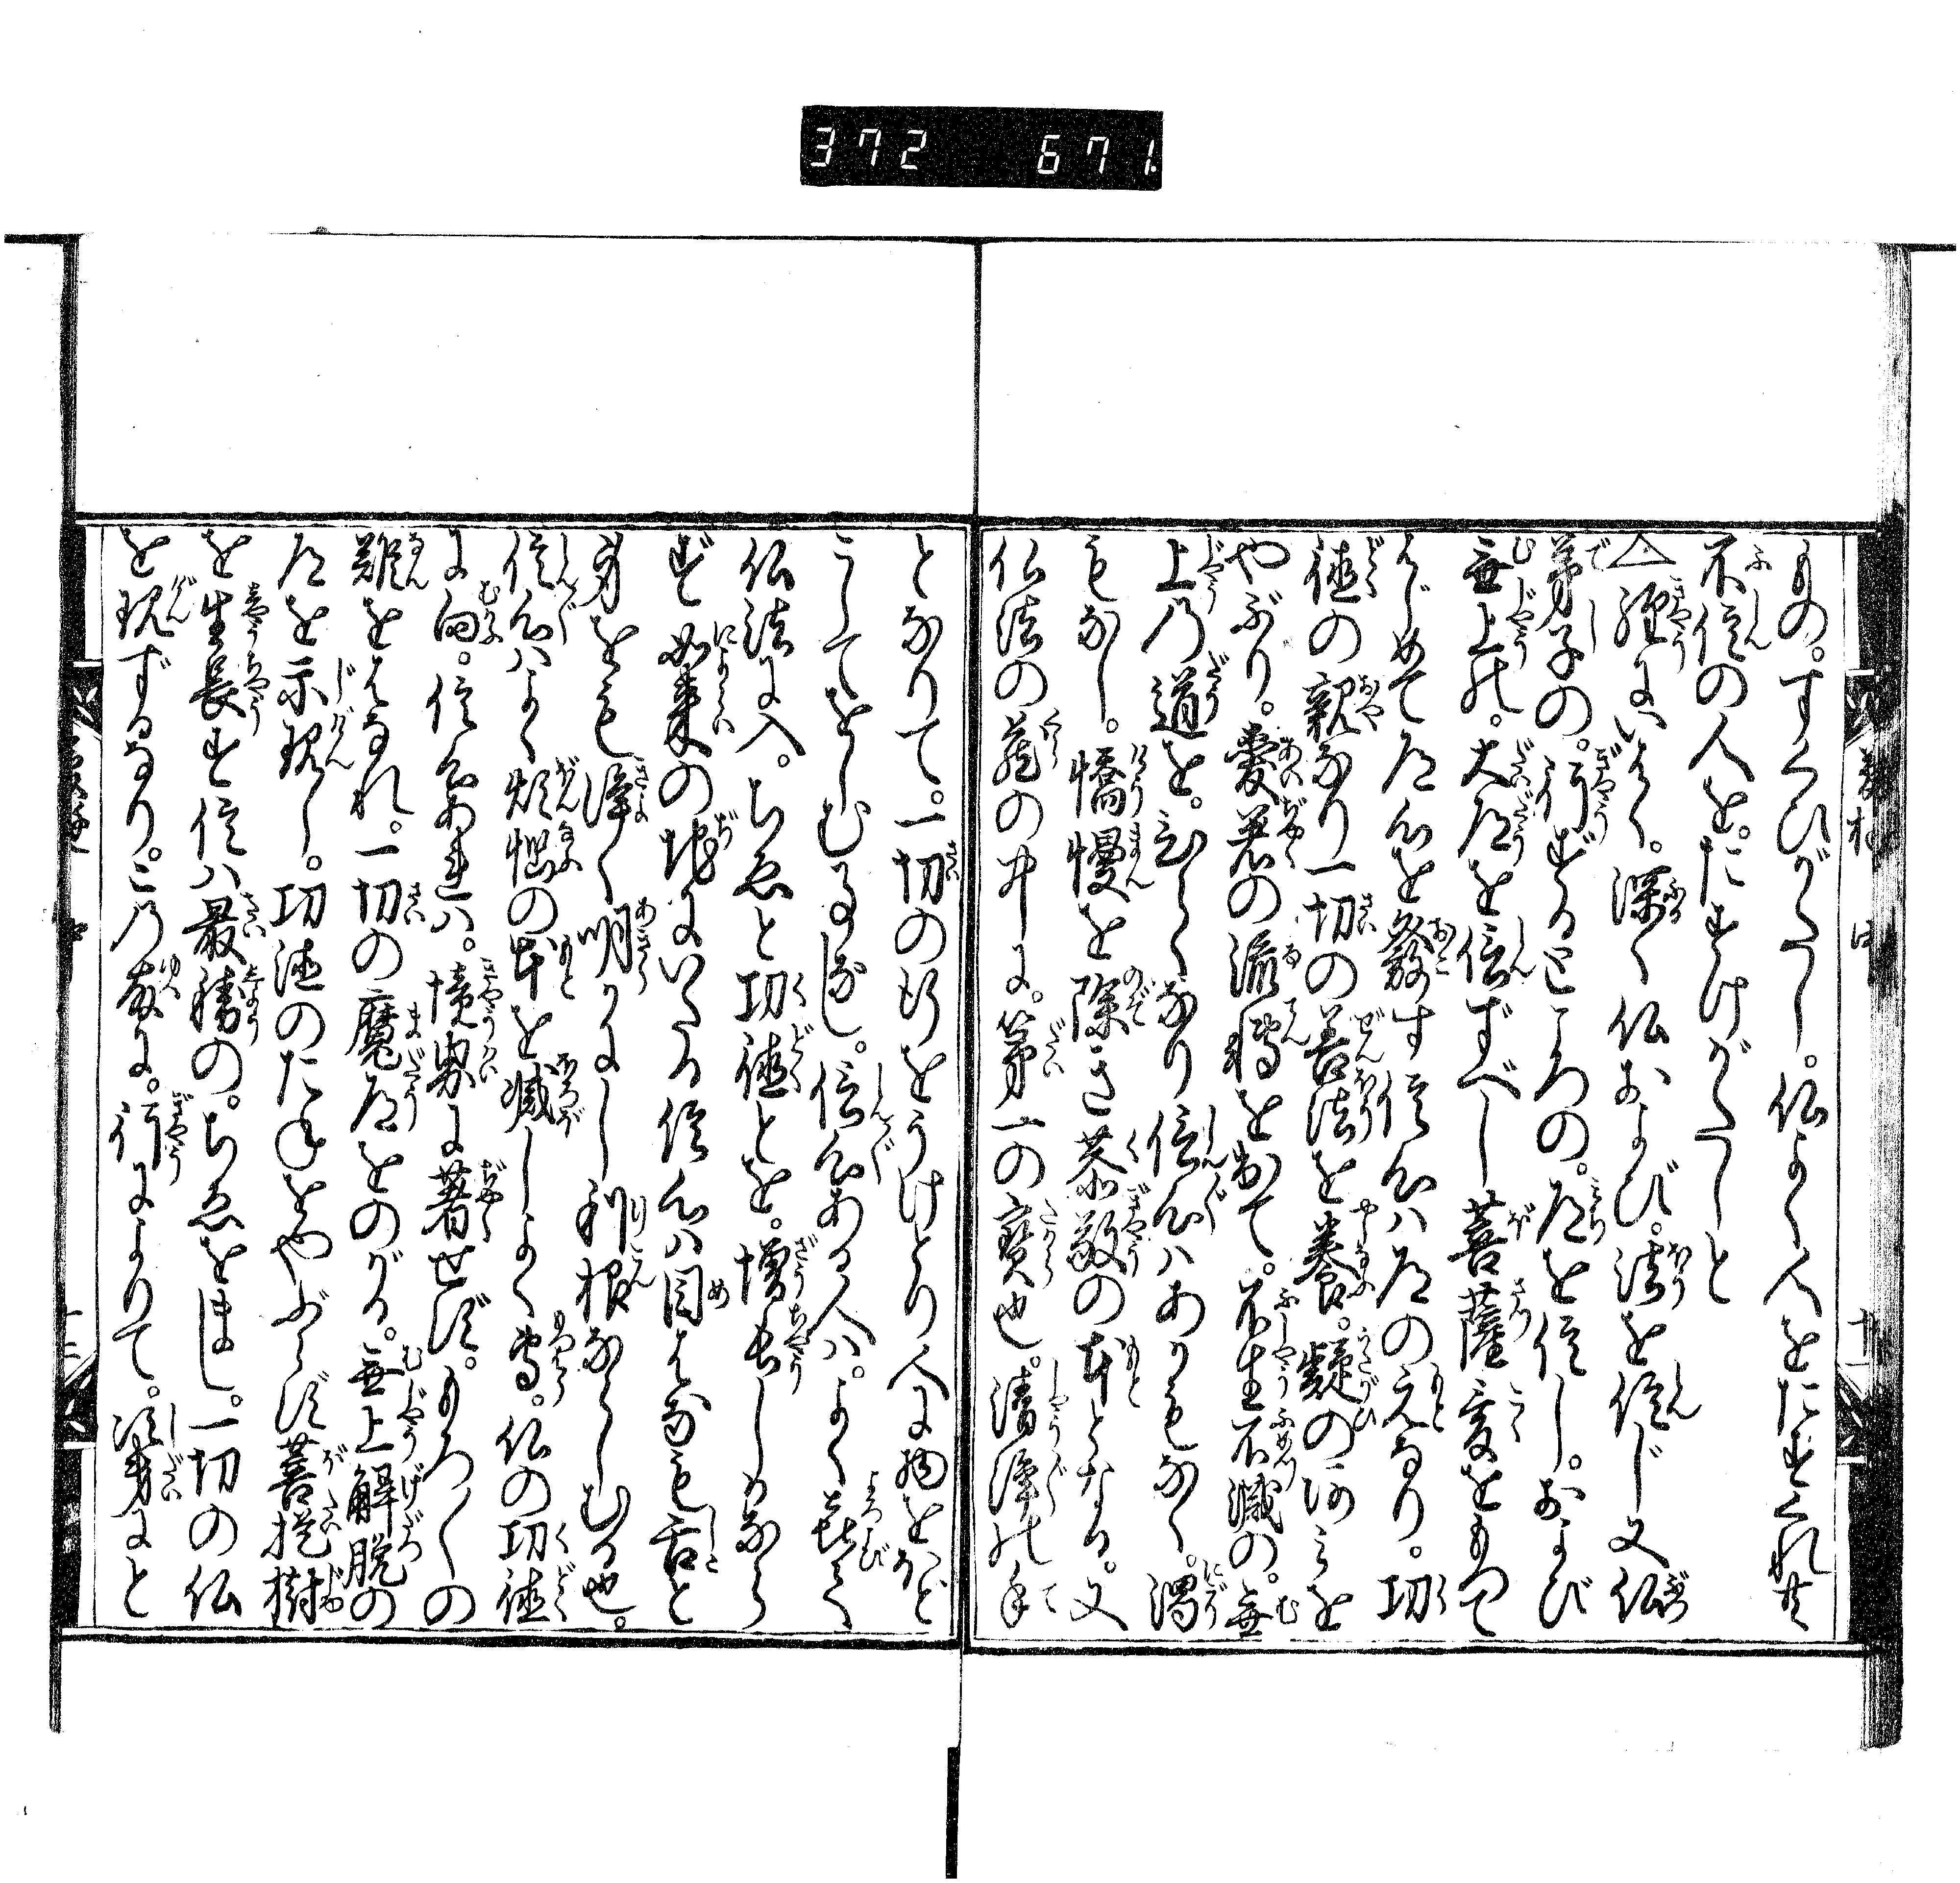 372 671
もの。すくひがたし。仏よく人をたすくれ共
不信の人を。たすけがたしと
△経にいはく。深く仏および。法を信じ又仏
弟子の。行ずるところの。道を信し。および
無上の。大道を信ずべし菩薩爰をもつて
はじめて道心を發す信心ハ道の元なり。功
徳の親なり一切の善法を養。疑のあミを
やぶり。愛着の流轉を出て。不生不滅の。無
上乃道を。ひらくなり信心ハあかもなく。濁
もなし。憍慢を除き恭敬の本となる。又
仏法の蔵の中に。第一の寳也。清浄の手
となりて。一切の行をうけとり人に物をほど
こしてをしむ事なし。信心ある人ハ。よく喜て
仏法に入。ちゑと功徳とを。増長しかなら
ず如来の地にいたる信心ハ目はなも舌と
身をも浄く明かにし利根ならしむる也。
信心ハよく煩悩の本を滅しよく専。仏の功徳
に向。信心あれハ。境界に著せず。もろ〱の
難をはなれ。一切の魔道をのがる。無上解脱の
道を示現し。功徳のたねをやぶらず菩提樹
を生長す信ハ最勝の。ちゑをまし。一切の仏
を現ずるなり。この故に。行によりて。次第にと